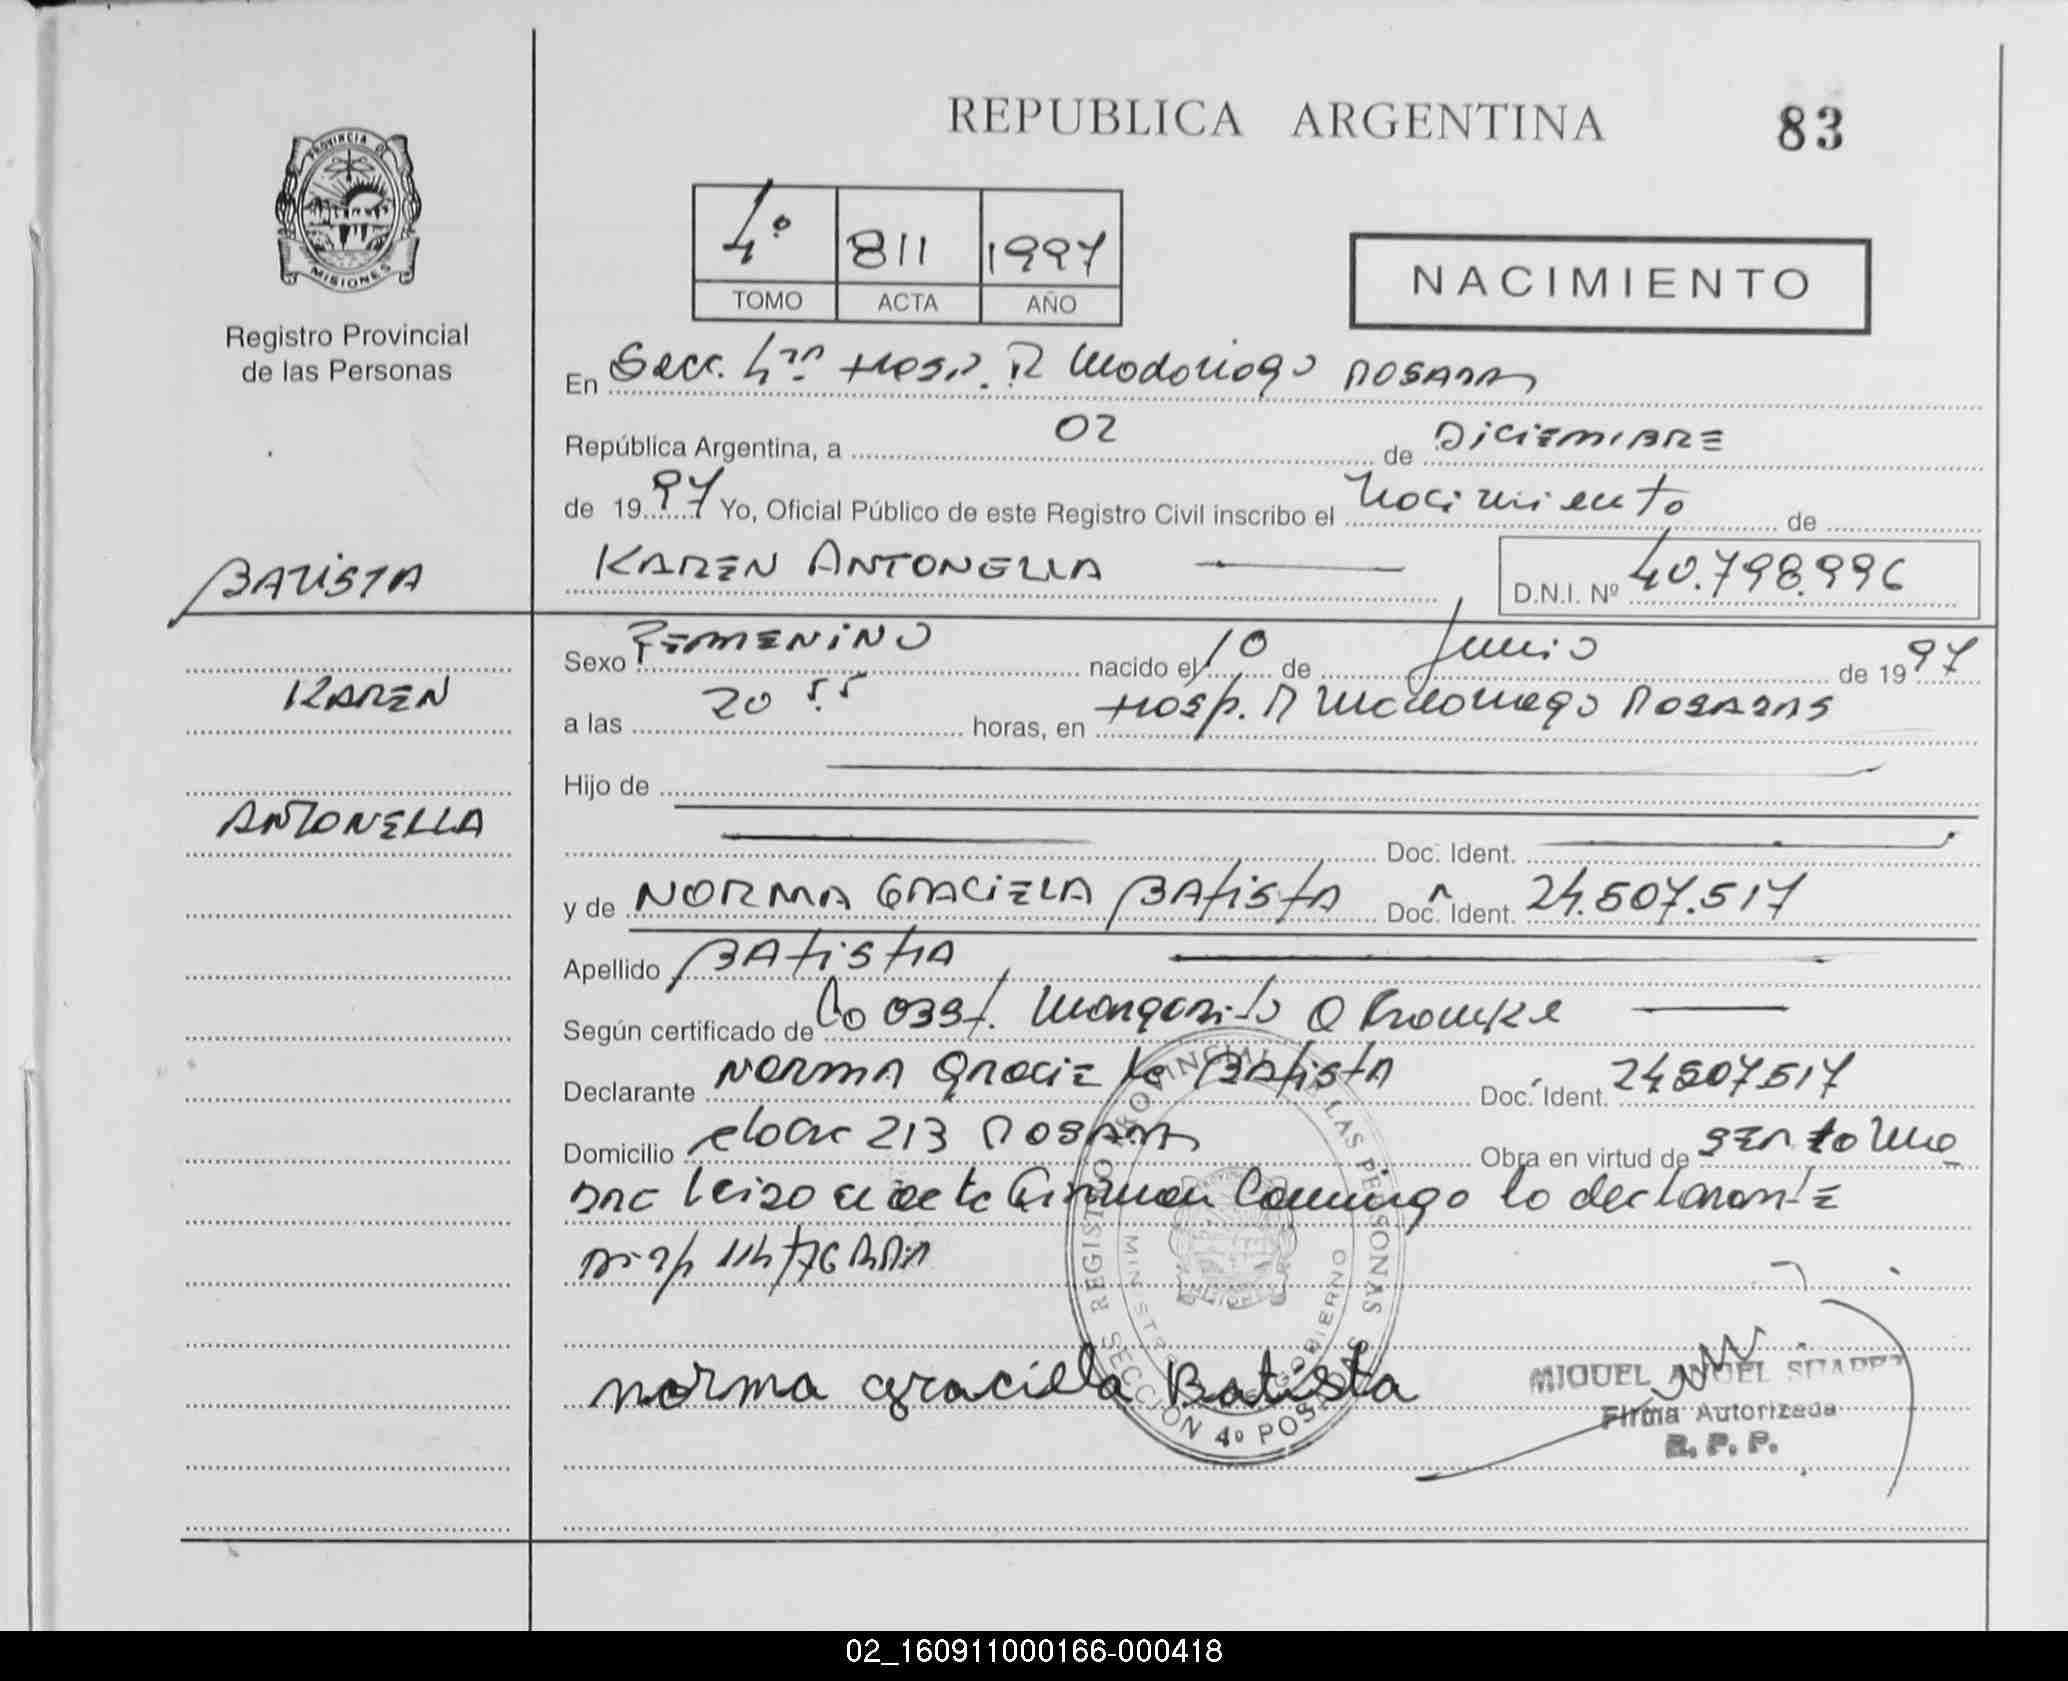 REPUBLICA ARGENTINA 83
PROVINCIA DE MISIONES
Registro Provincial
de las Personas
4º 811 1997
TOMO ACTA AÑO
NACIMIENTO
En Secc. 4ta Hosp. R Madariaga
República Argentina, a 02 de DICIEMBRE
de 1997 Yo, Oficial Público de este Registro Civil inscribo el Nacimiento de
BATISTA
KAREN ANTONELLA D.N.I. Nº 40.798.996
Sexo FEMENINO nacido el 10 de Junio de 1997
KAREN
a las 20 55 horas, en Hosp. R Madariaga
Hijo de
ANTONELLA
Doc. Ident.
y de NORMA GRACIELA BATISTA Doc. Ident. 24.507.517
Apellido BATISTA
Según certificado de
Declarante NORMA Graciela BATISTA Doc. Ident. 24507517
Domicilio 213 Obra en virtud de
lo declarante
norma graciela Batista
REGISTRO PROVINCIAL DE LAS PERSONAS
MINISTERIO DE GOBIERNO
SECCION 4º POSADAS
MIGUEL ANGEL SUAREZ
Firma Autorizada
R. P. P.
02_160911000166-000418